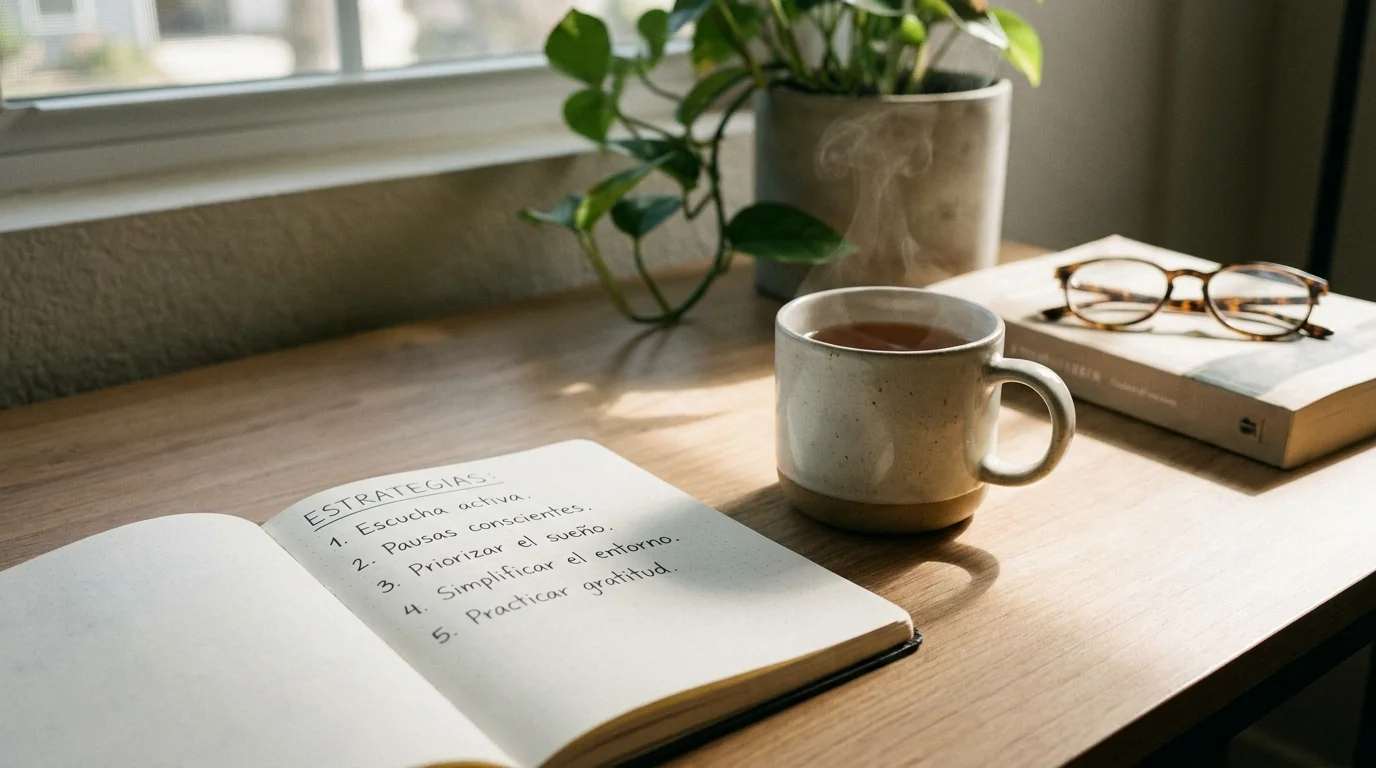 ESTRATEGIAS:
1. Escucha activa.
2. Pausas conscientes.
3. Priorizar el sueño.
4. Simplificar el entorno.
5. Practicar gratitud.